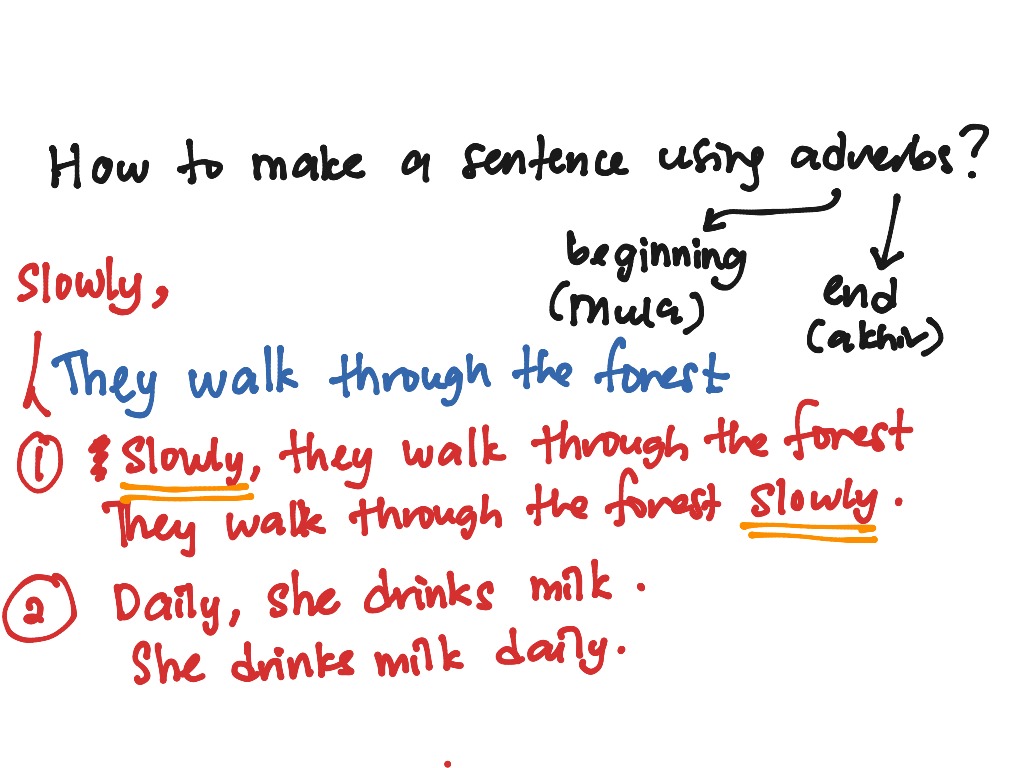 How to make a sentence using adverbs?
beginning
(mula)
end
(akhir)
Slowly,
They walk through the forest
1 Slowly, they walk through the forest
They walk through the forest slowly.
2 Daily, she drinks milk.
She drinks milk daily.